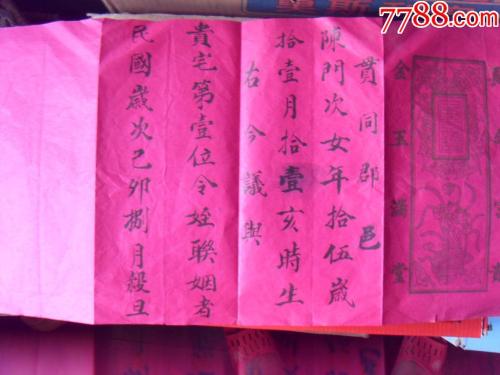 7788.com
金玉满堂
贯同郡邑
陳門次女年拾伍歲
拾壹月拾壹亥時生
右今議與
貴宅第壹位令姪聯姻者
民國歲次己卯捌月穀旦